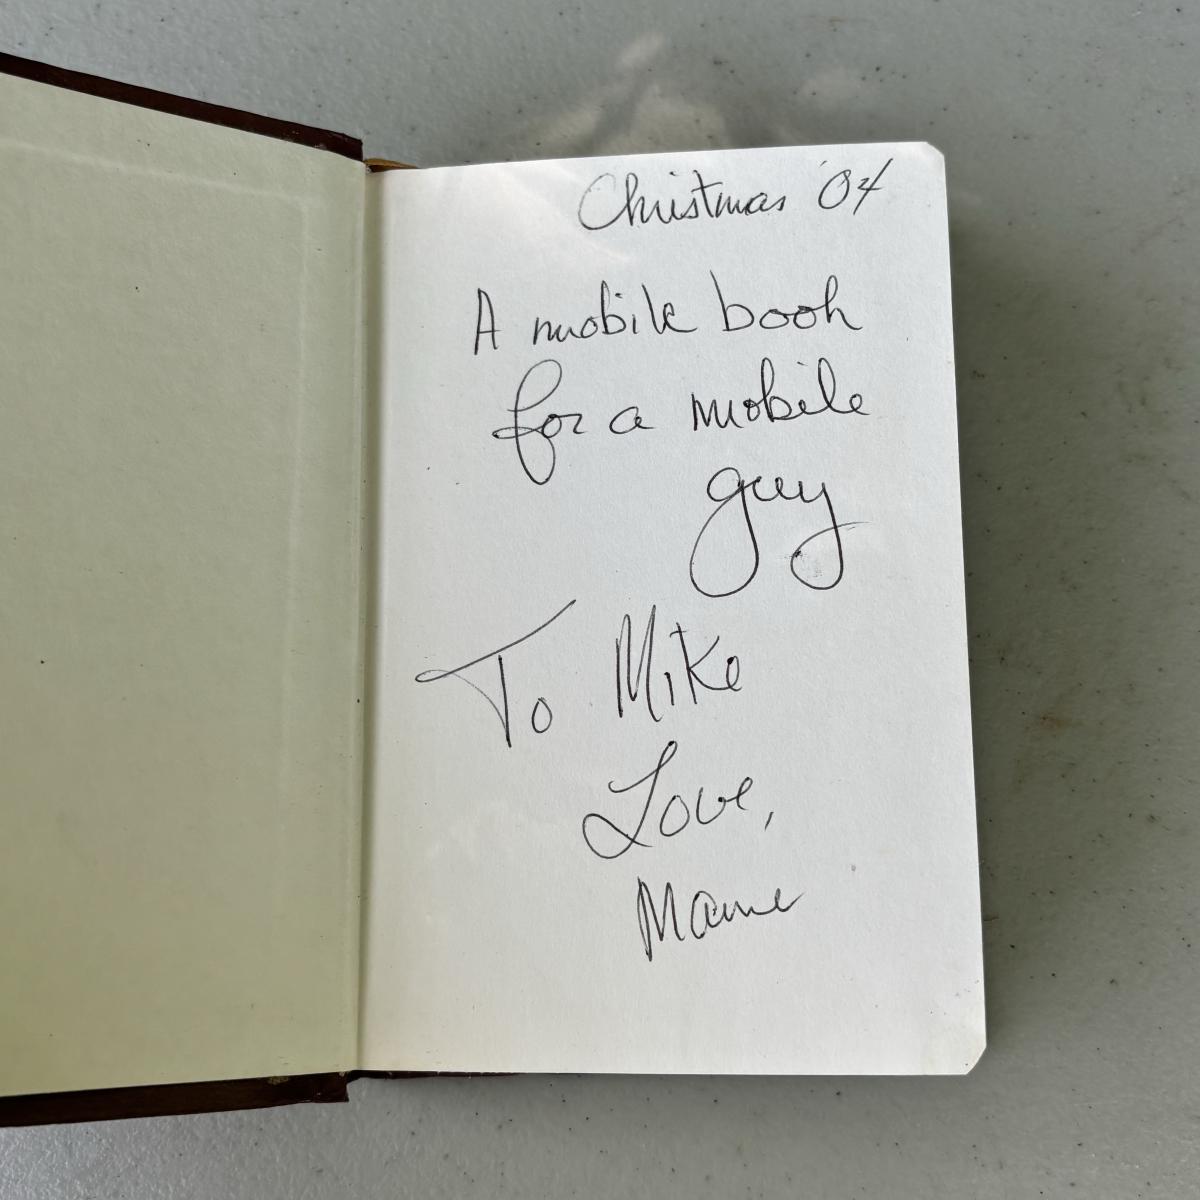 Christmas '04
A mobile book
for a mobile
guy
To Mike
Love,
Mame